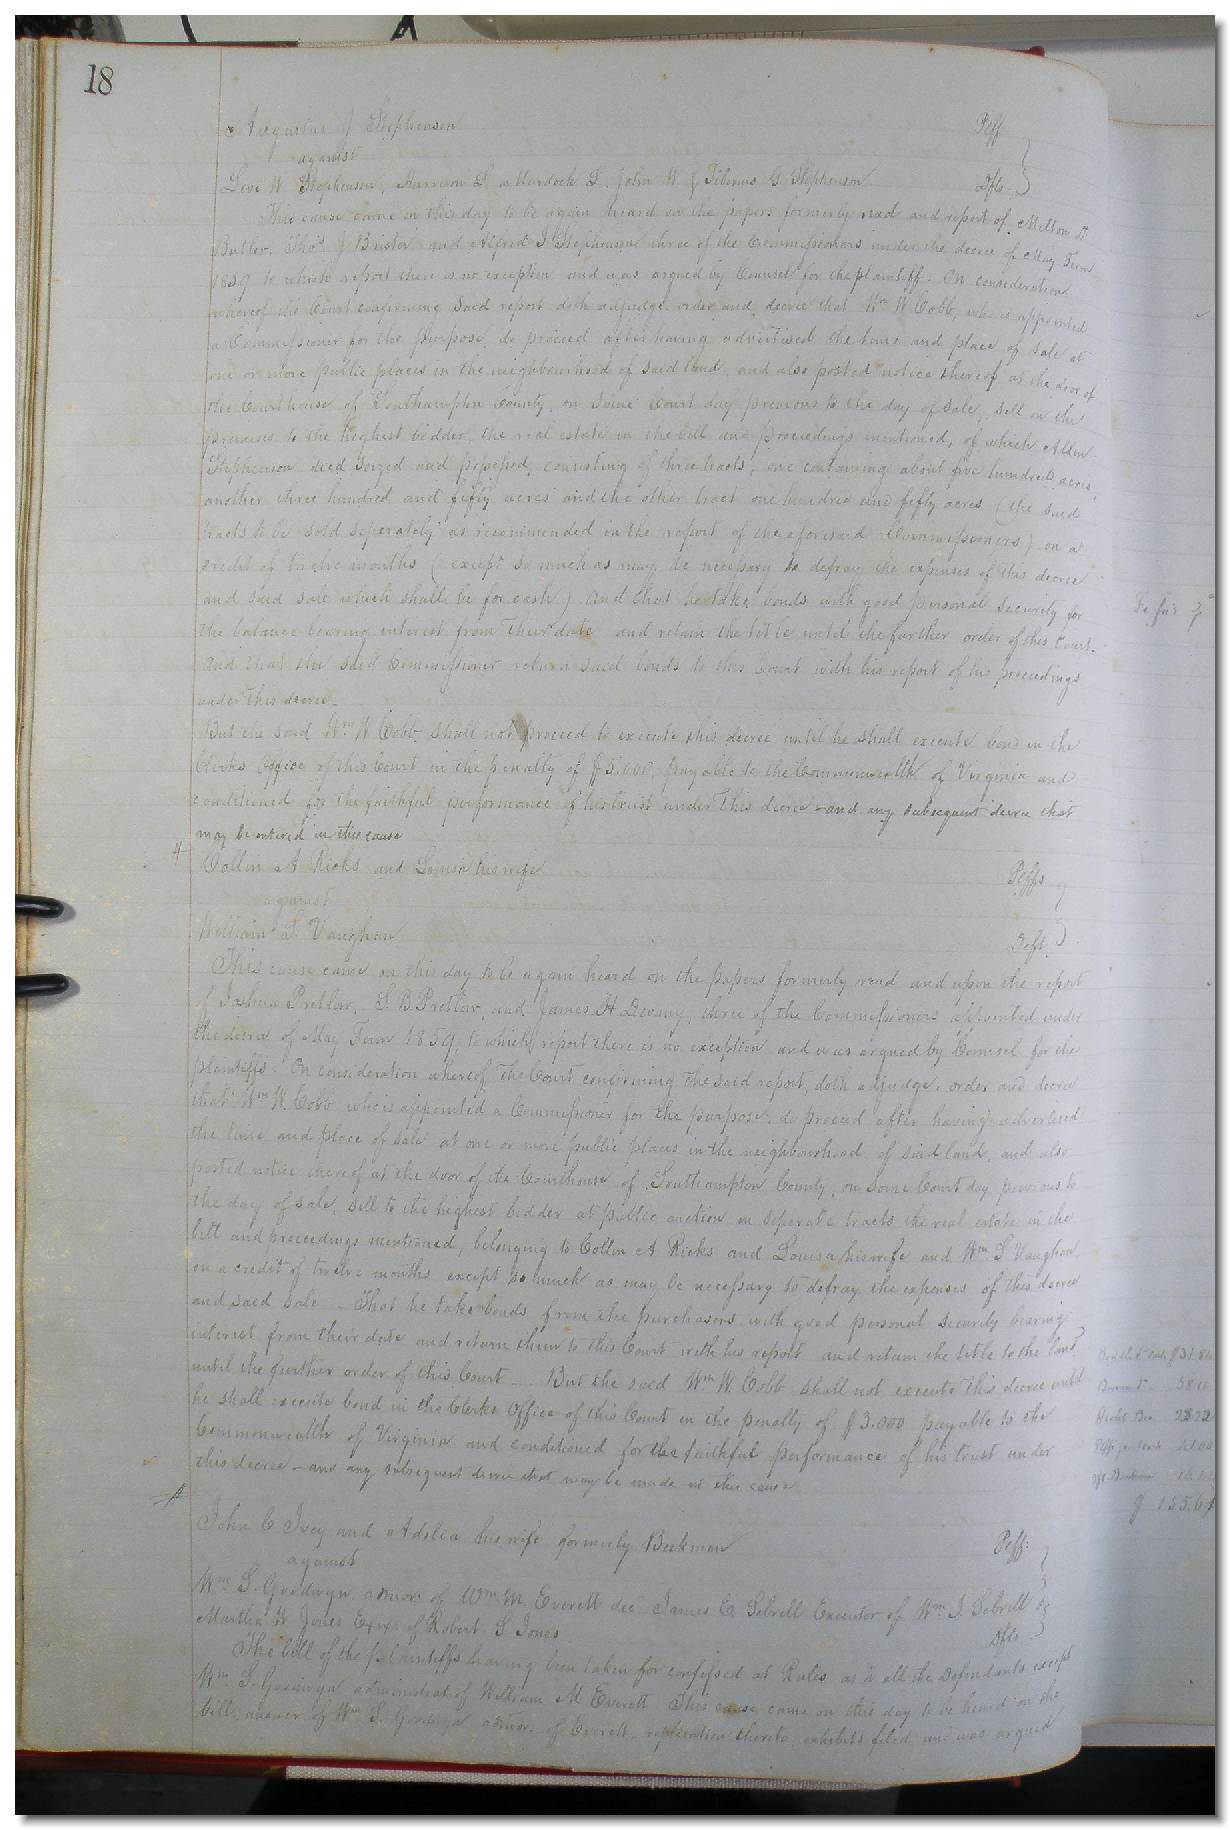 18
Augustus J Stephenson Plff
against
Levi W Stephenson, Harrison L, Murdock L, John W & Tiberius G. Stephenson Dfts.
This cause came on this day to be again heard on the papers formerly read and report of Melton D.
Butler, Thos J Bristor and Alfred J Stephenson three of the Commissioners under the decree of May Term
1859 to which report there is no exception and was argued by Counsel for the plaintiff. On consideration
whereof the Court confirming said report doth adjudge order and decree that Wm W Cobb, who is appointed
a Commissioner for the purpose, do proceed after having advertised the time and place of sale at
one or more public places in the neighbourhood of said land, and also posted notice thereof at the door of
the Courthouse of Southampton County, on some Court day previous to the day of sale, sell on the
premises to the highest bidder, the real estate in the bill and proceedings mentioned, of which
Stephenson died seized and possessed, consisting of three tracts, one containing about five hundred acres,
another three hundred and fifty acres and the other tract one hundred and fifty acres (the said
tracts to be sold seperately as recommended in the report of the aforesaid Commissioners) on a
credit of twelve months (except so much as may be necessary to defray the expenses of this decree
and said sale which shall be for cash) and that he take bonds with good personal security for
the balance bearing interest from their date and retain the title until the further order of this Court.
And that the said Commissioner return said bonds to this Court with his report of his proceedings
under this decree.
But the said Wm W Cobb shall not proceed to execute this decree until he shall execute bond in the
Clerks Office of this Court in the penalty of $5.000, payable to the Commonwealth of Virginia and
conditioned for the faithful performance of his trust under this decree and any subsequent decree that
may be entered in this cause
Collin A Ricks and Louisa his wife Plffs
against
William S Vaughan Deft.
This cause came on this day to be again heard on the papers formerly read and upon the report
of Joshua Pretlow, S. B. Pretlow, and James H Devany, three of the Commissioners appointed under
the decree of May Term 1859, to which report there is no exception and was argued by Counsel for the
plaintiffs. On consideration whereof the Court confirming the said report, doth adjudge, order and decree
that Wm W Cobb who is appointed a Commissioner for the purpose, do proceed after having advertised
the time and place of sale at one or more public places in the neighbourhood of said land, and also
posted notice thereof at the door of the Courthouse of Southampton County, on some Court day previous to
the day of sale, sell to the highest bidder at public auction in seperate tracts the real estate in the
bill and proceedings mentioned, belonging to Collin A Ricks and Louisa his wife and Wm S Vaughan
on a credit of twelve months except so much as may be necessary to defray the expenses of this decree
and said sale - That he take bonds from the purchasers with good personal security bearing
interest from their date and return them to this Court with his report and retain the title to the land
until the further order of this Court - But the said Wm W Cobb shall not execute this decree until
he shall execute bond in the Clerks Office of this Court in the penalty of $3.000 payable to the
Commonwealth of Virginia and conditioned for the faithful performance of his trust under
this decree and any subsequent decree that may be made in this cause
John C Ivey and Adelia his wife formerly Beekman Plff:
against
Wm S. Goodwyn admor of Wm M Everett dec James E Sebrell Executor of Wm J. Sebrell &
Martha W Jones Exix of Robert S Jones Dfts
The bill of the plaintiffs having been taken for confessed at Rules as to all the Defendants except
Wm S. Goodwyn administrat of William M Everett This cause came on this day to be heard on the
bill, answer of Wm S. Goodwyn admor. of Everett, replication thereto, exhibits filed and was argued